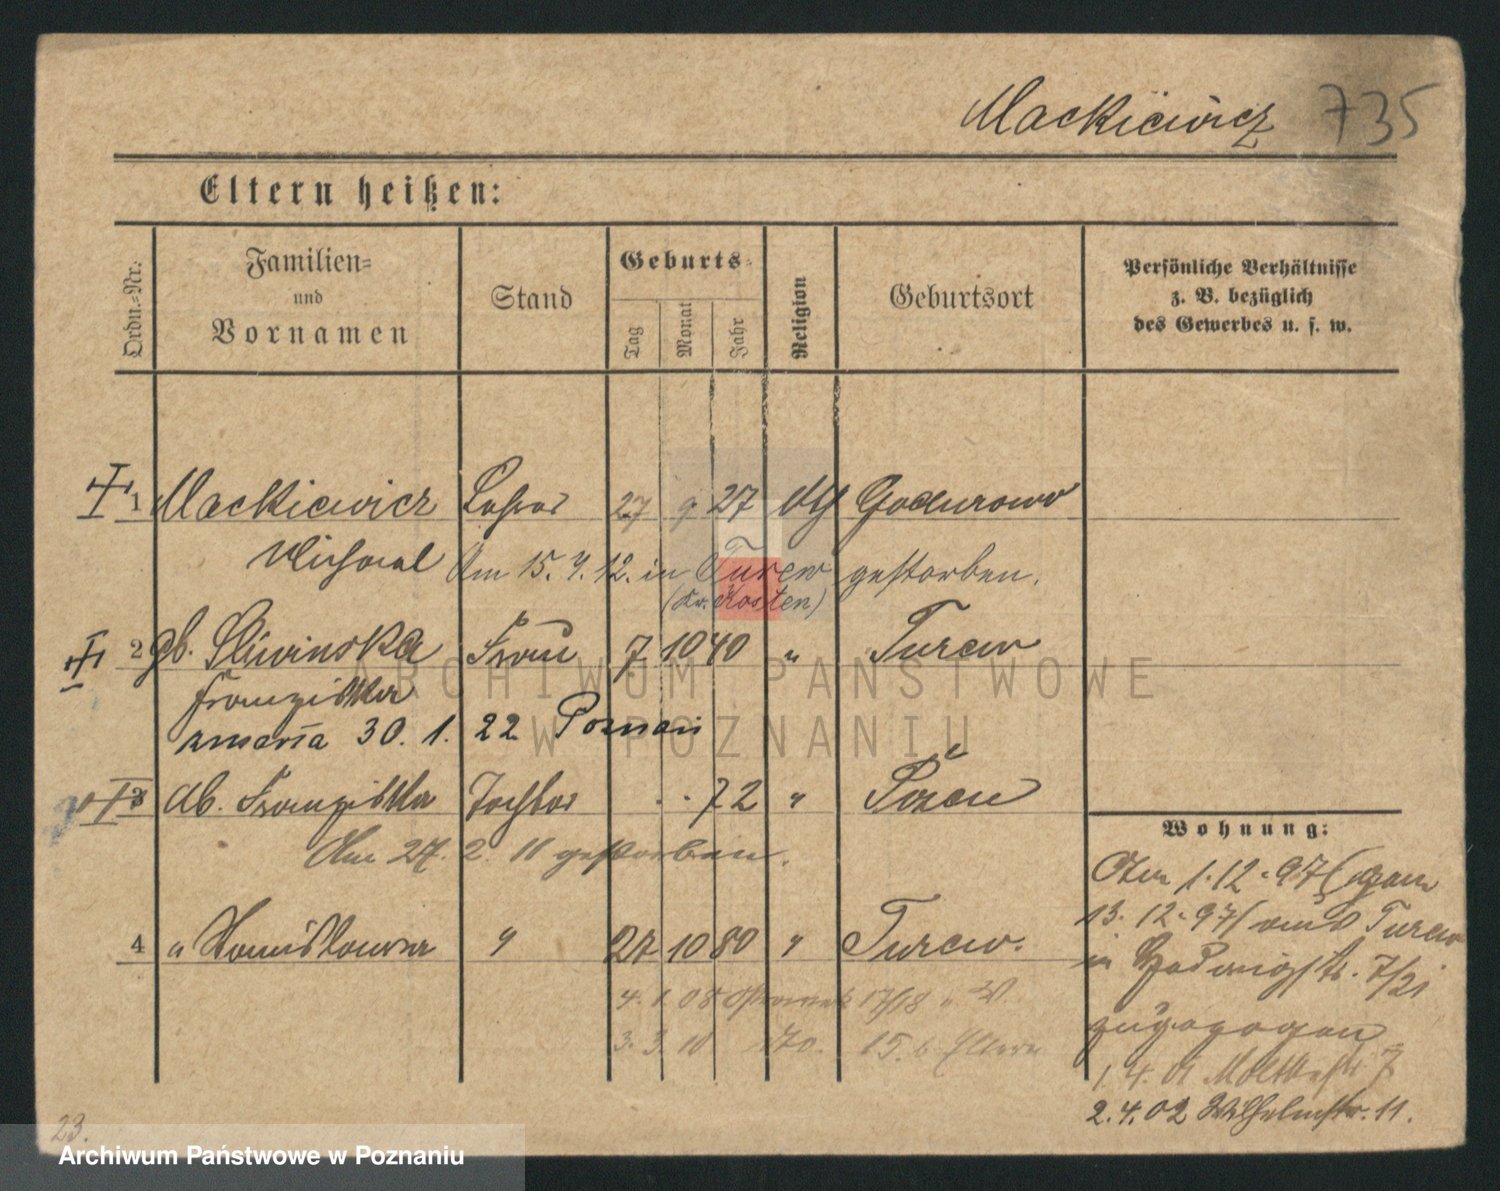 Mackiewicz 735
Eltern heißen:
Ordn.-Nr.
Familien-
und
Vornamen
Stand
Geburts-
Tag
Monat
Jahr
Religion
Geburtsort
Persönliche Verhältnisse
z. B. bezüglich
des Gewerbes u. s. w.
1 Mackiewicz 27 9 27 Godurowo
Michael Am 15. 9. 12. in Turew gestorben.
(Kr. Kosten)
2 gb. Śliwinska Frau 7 10 40 " Turew
Franziska
zmarła 30. 1. 22 Poznań
ARCHIWUM PAŃSTWOWE
W POZNANIU
3 ab. Franziska Tochter 72 " Posen
Am 27. 2. 11 gestorben.
4 " Stanislawa " 27 10 80 " Turew.
4. 1. 08 17/18
3. 3. 11 15. b. Eltern
Wohnung:
Am 1.12.97 (gem
13. 12. 97) aus Turew
in Hedwigstr. 7/21
zugezogen
1. 4. 01 Moltkestr 7
2. 4. 02 Wilhelmstr. 11.
23.
Archiwum Państwowe w Poznaniu